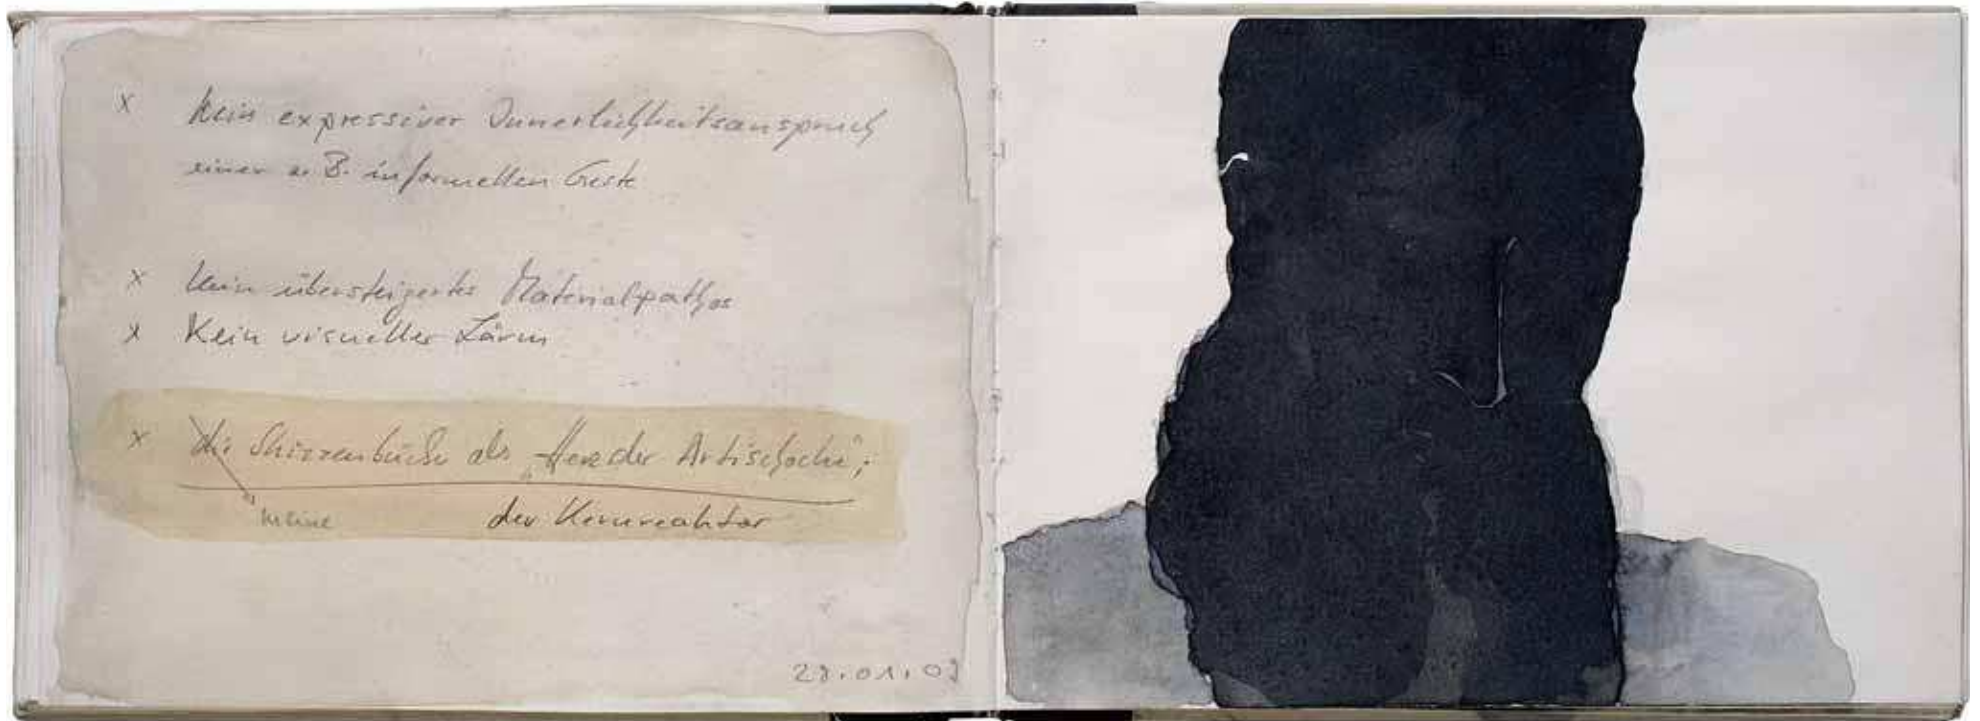 x kein expressiver Innerlichkeitsanspruch
einer z. B. informellen Geste
x kein übersteigertes Materialpathos
x Kein visueller Lärm
x die Skizzenbücher als „Herz der Artischocke";
meine der Kernreaktor
29.01.09